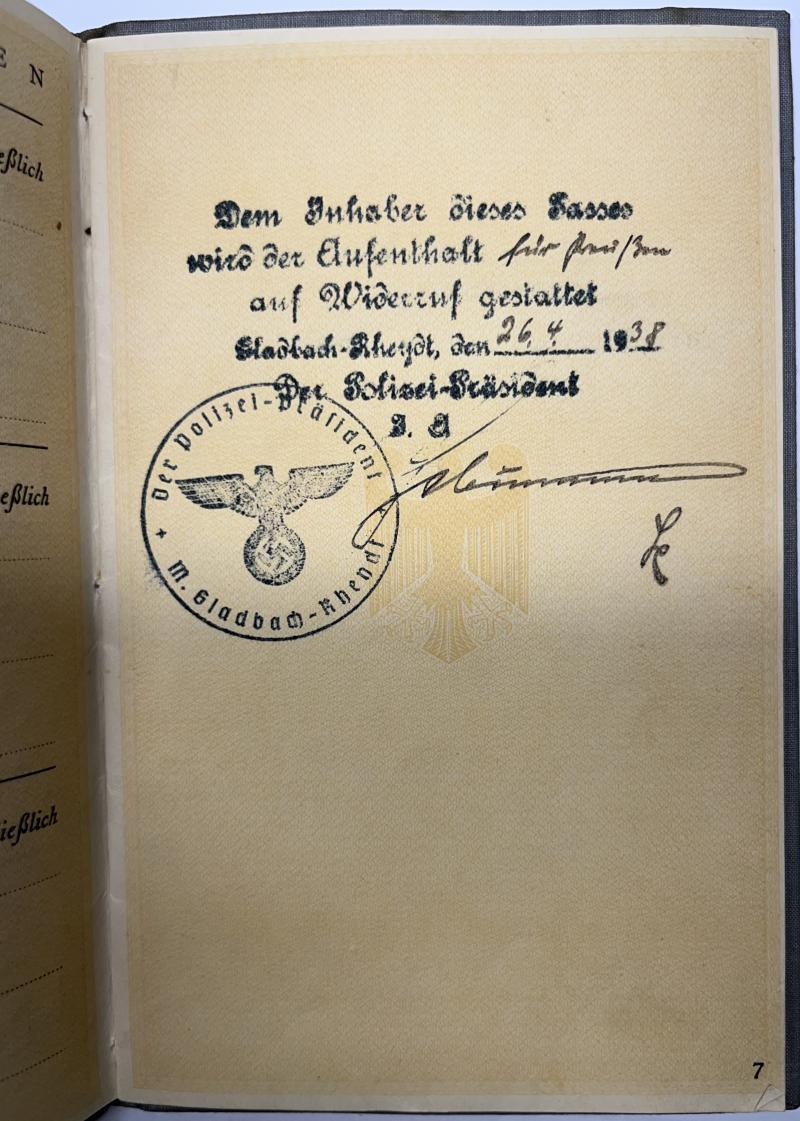 E N
eßlich
eßlich
ießlich
Dem Inhaber dieses Passes
wird der Aufenthalt für Preußen
auf Widerruf gestattet
Gladbach-Rheydt, den 26. 4. 1938
Der Polizei-Präsident
I. A
Der Polizei-Präsident
M. Gladbach-Rheydt
7